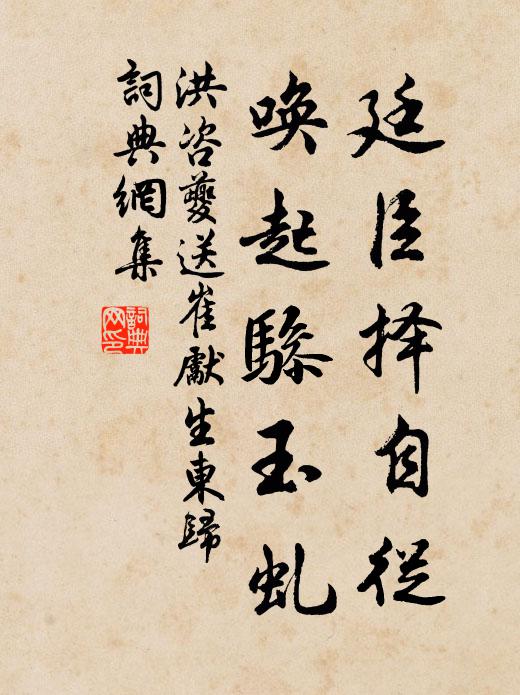 廷臣择自從
喚起驂玉虬
洪咨夔送崔獻生東歸
詞典網集
詞典网印